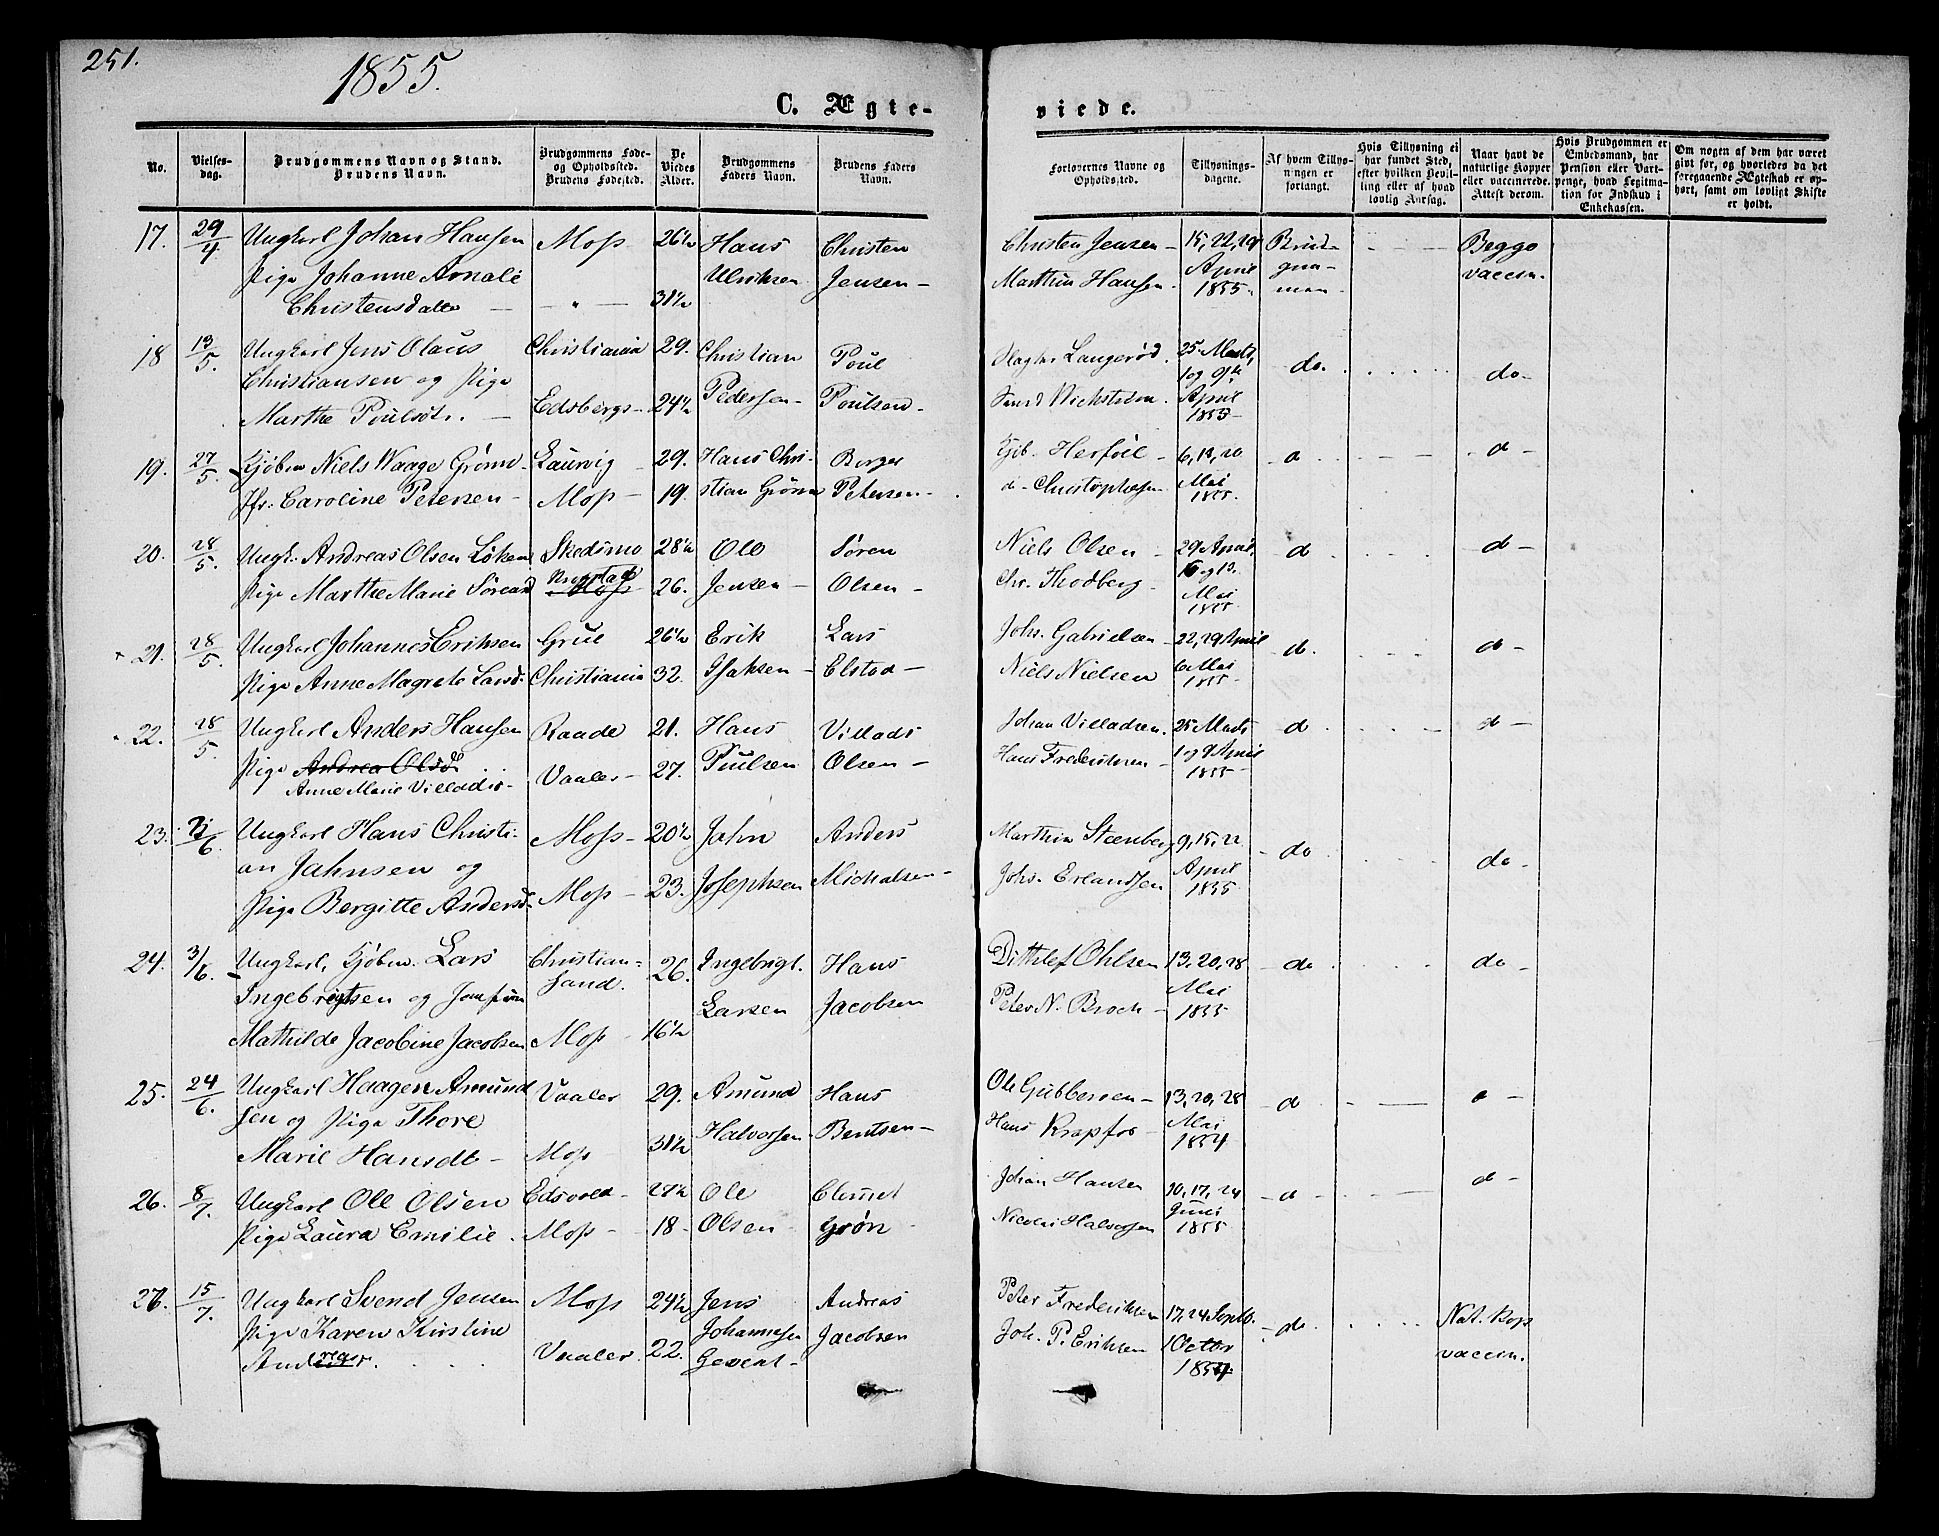 251.
1855.
C. Ægte-
viede.
No.
Vielses-
dag.
Brudgommens Navn og Stand.
Brudens Navn.
Brudgommens Føde-
og Opholdssted.
Brudens Fødested.
De
Viedes
Alder.
Brudgommens
Faders Navn.
Brudens Faders
Navn.
Forlovernes Navne og
Opholdssted.
Tillysnings-
dagene.
Af hvem Tillys-
ningen er
forlangt.
Hvis Tillysning ei
har fundet Sted,
efter hvilken Bevil-
ling eller af hvad
lovlig Aarsag.
Naar havt de
naturlige Kopper
eller vaccinerede.
Attest derom.
Hvis Brudgommen er
Embedsmand, har
Pension eller Vart-
penge, hvad Legitima-
tion for Indskud i
Enkekassen.
Om nogen af dem har været
gift før, og hvorledes da det
foregaaende Ægteskab er op-
hørt, samt om lovligt Skifte
er holdt.
17. 29/4 Ungkarl Johan Hansen Moss 26½ Hans Christen Christen Jensen 15, 22, 29 Brud- Begge
Pige Johanne Amalie Ulriksen Jensen Marthin Hansen April gom- vaccin.
Christensdatter 31½ 1855. man
18 13/5 Ungkarl Jens Olaus Christiania 29. Christian Poul Langerød. 25 Marts, do. do
Christiansen og Pige 1 og 9de
Marthe Poulsdtr. Edsberg 24½ Pedersen Poulsen Wichstrøm. April
1855
19. 27/5 Kjøbm Niels Waage Grønn Laurvig 29. Hans Chri- Borger Kjb. Herføel 6, 13, 20 d d
Jfr. Caroline Petersen Moss 19. stian Grønn Petersen d Christophersen Mai
1855.
20. 28/5. Ungk. Andreas Olsen Løken Skedsmo 28½ Ole Søren Niels Olsen 29 April, d d
Pige Marthe Marie Sørensd Rygstad Moss 26. Jensen Olsen Chr. Thodberg 6 og 13.
Mai
1855.
21. 28/5. Ungkarl Johannes Eriksen Grue 26½ Erik Lars Johs. Gabrielsen 22, 29 April d. d
Pige Anne Magrete Larsd. Christiania 32. Isaksen Elstad Niels Nielsen 6 Mai
1855.
22. 28/5 Ungkarl Anders Hansen Raade 21. Hans Villads Johan Villadsen. 25 Marts d d
Pige Andrea Olsd. Vaaler 27. Poulsen Olsen Hans Frederiksen 1 og 9 April
Anne Marie Villadsd. 1855
23. 3/6. Ungkarl Hans Christi- Moss 20½ Jahn Anders Marthin Steenberg 9, 15, 22 do do
an Jahnsen og April
Pige Bergitte Andersd. Moss 23. Josephsen Michalsen Johs. Erlandsen 1855
24. 3/6. Ungkarl, Kjøbm. Lars Christian- 26. Ingebrigt. Hans Dithlef Ohlsen 13, 20, 28 do do
Ingebrigtsen og Jomfrue sand. Larsen Jacobsen Peter N. Broch Mai
Mathilde Jacobine Jacobsen Moss 16½ 1855
25. 24/6. Ungkarl Haagen Amund Vaaler 29. Amund Hans Ole Gubberøen 13, 20, 28 d d
sen og Pige Thore Hans Krapfos Mai
Marie Hansdt Moss 31½ Halvorsen Bentsen 1854
26. 8/7. Ungkarl Ole Olsen Edsvold 27½ Ole Clemet Johan Hansen 10, 17, 24 d d
Pige Laura Emilie. Moss 18 Olsen Grøn Nicolai Halvorsen Juni
1855.
27. 15/7. Ungkarl Svend Jensen Moss 24½ Jens Andreas Peter Frederiksen 17, 24 Septb. do. Nat. Kop
Pige Karen Kirstine Johannesen Jacobsen Joh. P. Eriksen 1 Octbr vaccin.
Andreas. Vaaler. 22. 1854